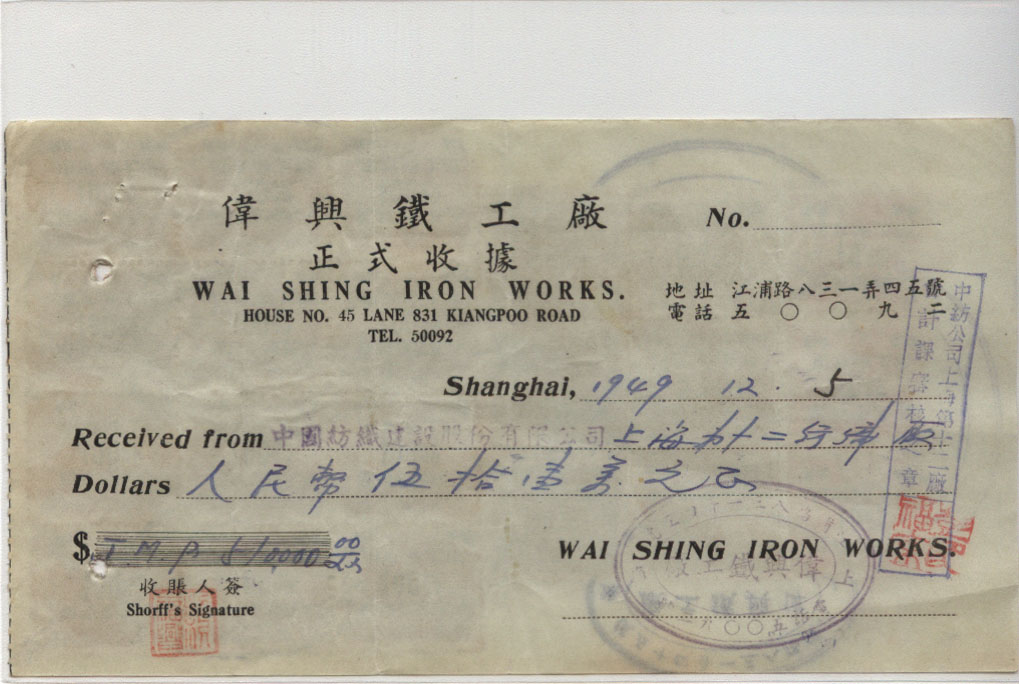 偉興鐵工廠
No.
正式收據
WAI SHING IRON WORKS.
地址 江浦路八三一弄四五號
HOUSE NO. 45 LANE 831 KIANGPOO ROAD
電話 五〇〇九二
TEL. 50092
Shanghai, 1949 12. 5
Received from 中國紡織建設股份有限公司 上海第十二紡織廠
Dollars 人民幣伍拾壹萬元正
$ JMP 510,000 00
WAI SHING IRON WORKS.
收賬人簽
Shorff's Signature
中紡公司上海第十二廠
上偉興鐵工廠